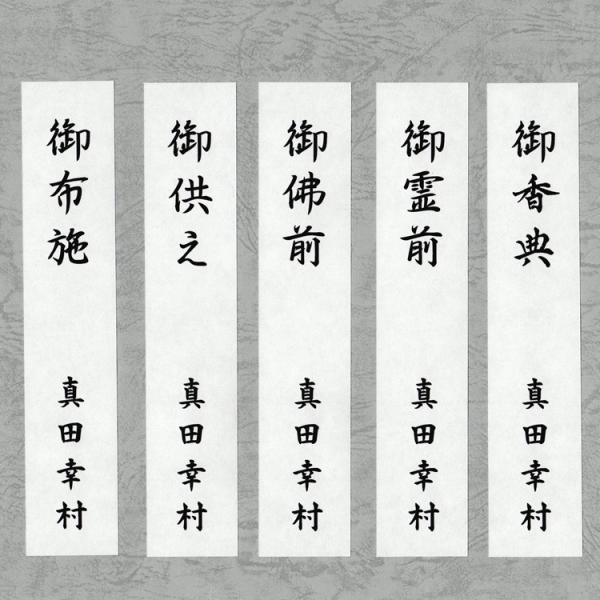 御香典
真田幸村
御霊前
真田幸村
御佛前
真田幸村
御供え
真田幸村
御布施
真田幸村